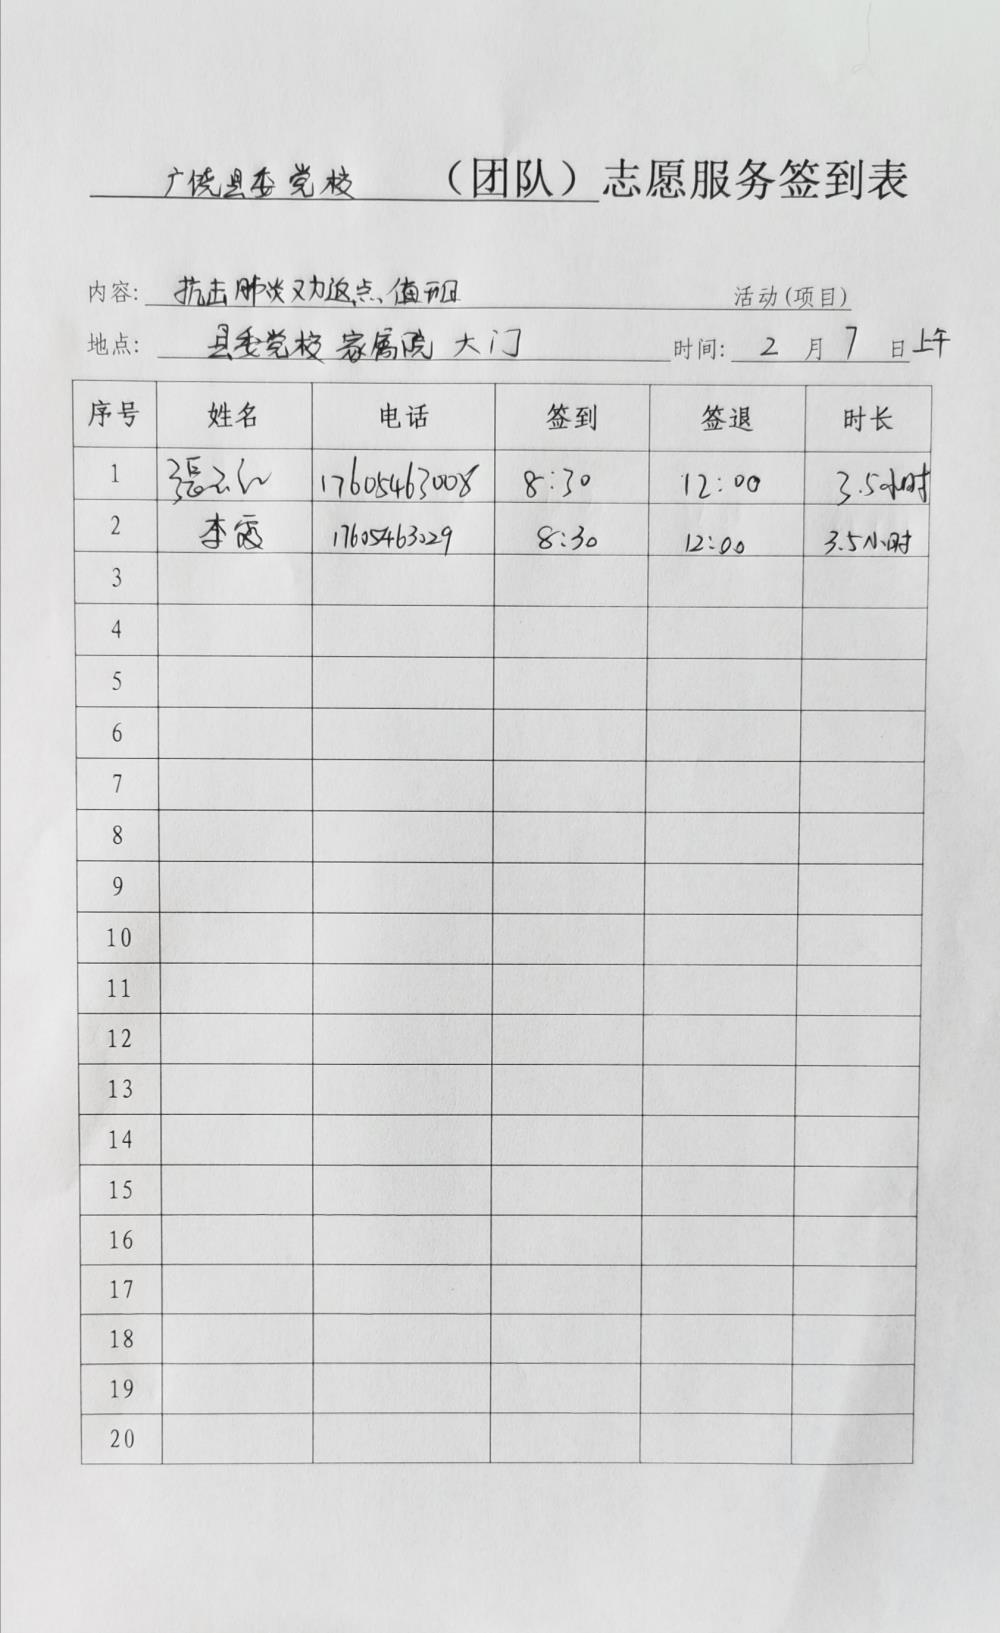 广饶县委党校 （团队）志愿服务签到表
内容: 抗击肺炎劝返点、值班 活动(项目)
地点: 县委党校家属院 大门 时间: 2 月 7 日上午
序号 姓名 电话 签到 签退 时长
1 張 17605463008 8:30 12:00 3.5小时
2 李霞 17605463029 8:30 12:00 3.5小时
3
4
5
6
7
8
9
10
11
12
13
14
15
16
17
18
19
20